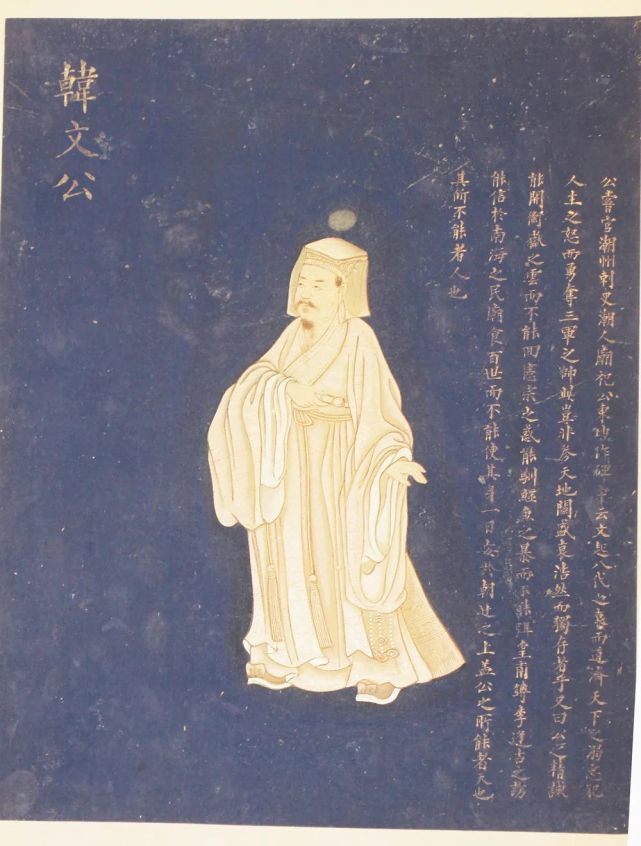 韓文公
公嘗官潮州刺史潮人廟祀公東坡作碑中云文起八代之衰而道濟天下之溺忠犯
人主之怒而勇奪三軍之帥豈非參天地關盛衰浩然而獨存者乎又曰公之精誠
能開衡嶽之雲而不能回憲宗之惑能馴鱷魚之暴而不能弭皇甫鎛李逢吉之謗
能信於南海之民廟食百世而不能使其身一日安於朝廷之上蓋公之所能者天也
其所不能者人也